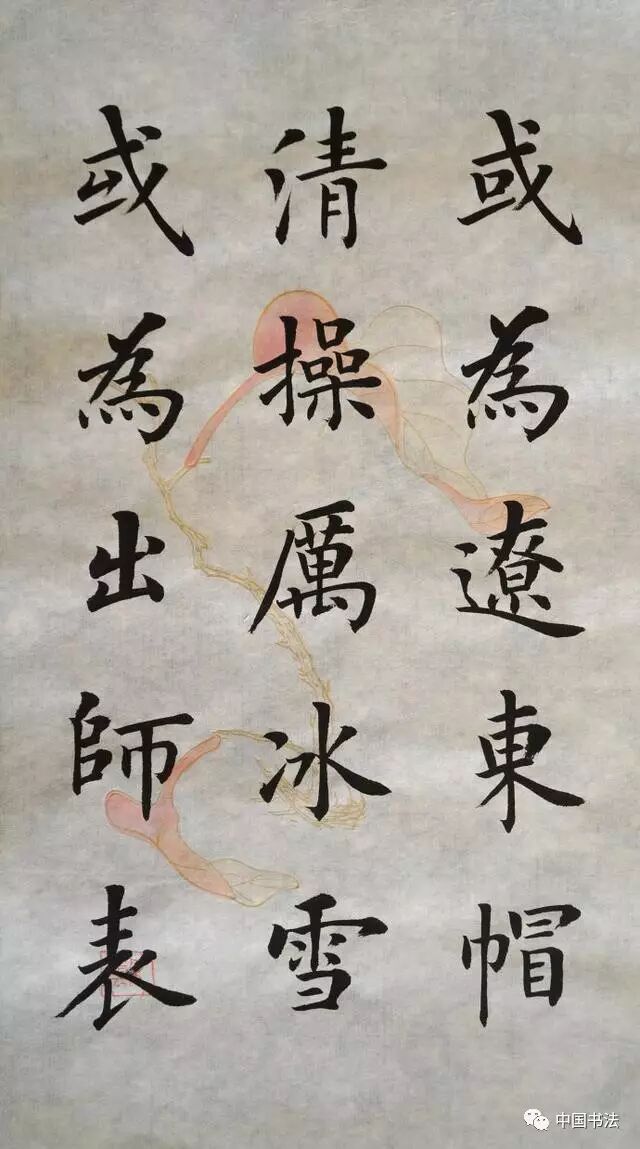 或為遼東帽
清操厲冰雪
或為出師表
中国书法